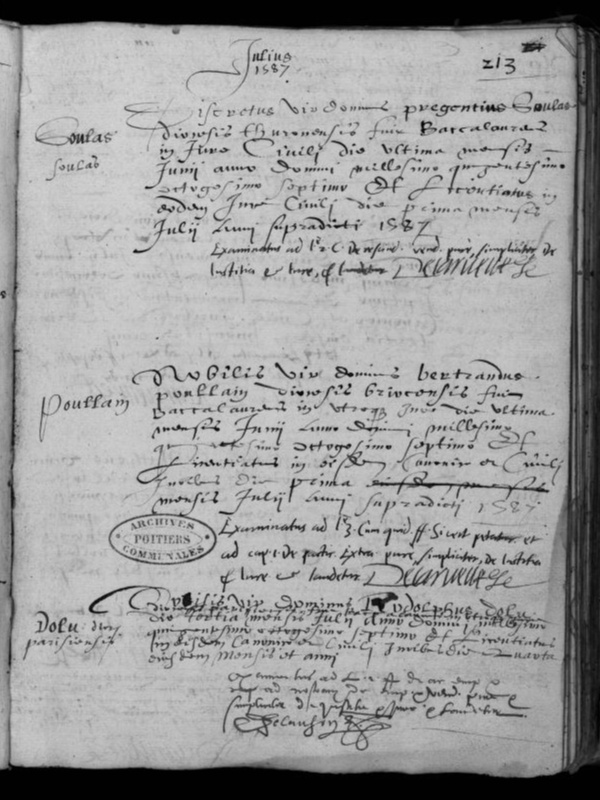 Julius
1587
213
Soulas
soulas
Discretus vir dominus pregentius Soulas
diocesis thuronensis fuit Baccalaureus
in Jure Civili die ultima mensis
Junii anno domini millesimo quingentesimo
octogesimo septimo Et Licentiatus in
eodem Jure Civili die prima mensis
Julii anni supradicti 1587
Examinatus ad pure, simpliciter de
Justitia et Jure, et laudetur
Poullain
Nobilis vir dominus bertrandus
poullain diocesis briocensis fuit
Baccalaureus in utroque Jure die ultima
mensis Junii anno domini millesimo
quingentesimo octogesimo septimo Et
Licentiatus in eisdem Canonico et Civili
Juribus die prima
mensis Julii anni supradicti 1587
ARCHIVES
POITIERS
COMMUNALES
Examinatus ad et
ad cap. 1. de pactis Extra pure, simpliciter, de Justitia
et Jure et laudetur
Dolu dioc
parisiensis
Nobilis vir dominus Rodolphus dolu
die tertia mensis Julii anno domini millesimo
quingentesimo octogesimo septimo Et Licentiatus
in eisdem Canonico et Civili Juribus die quarta
eiusdem mensis et anni
examinatus ad
simpliciter de justitia et jure et laudetur